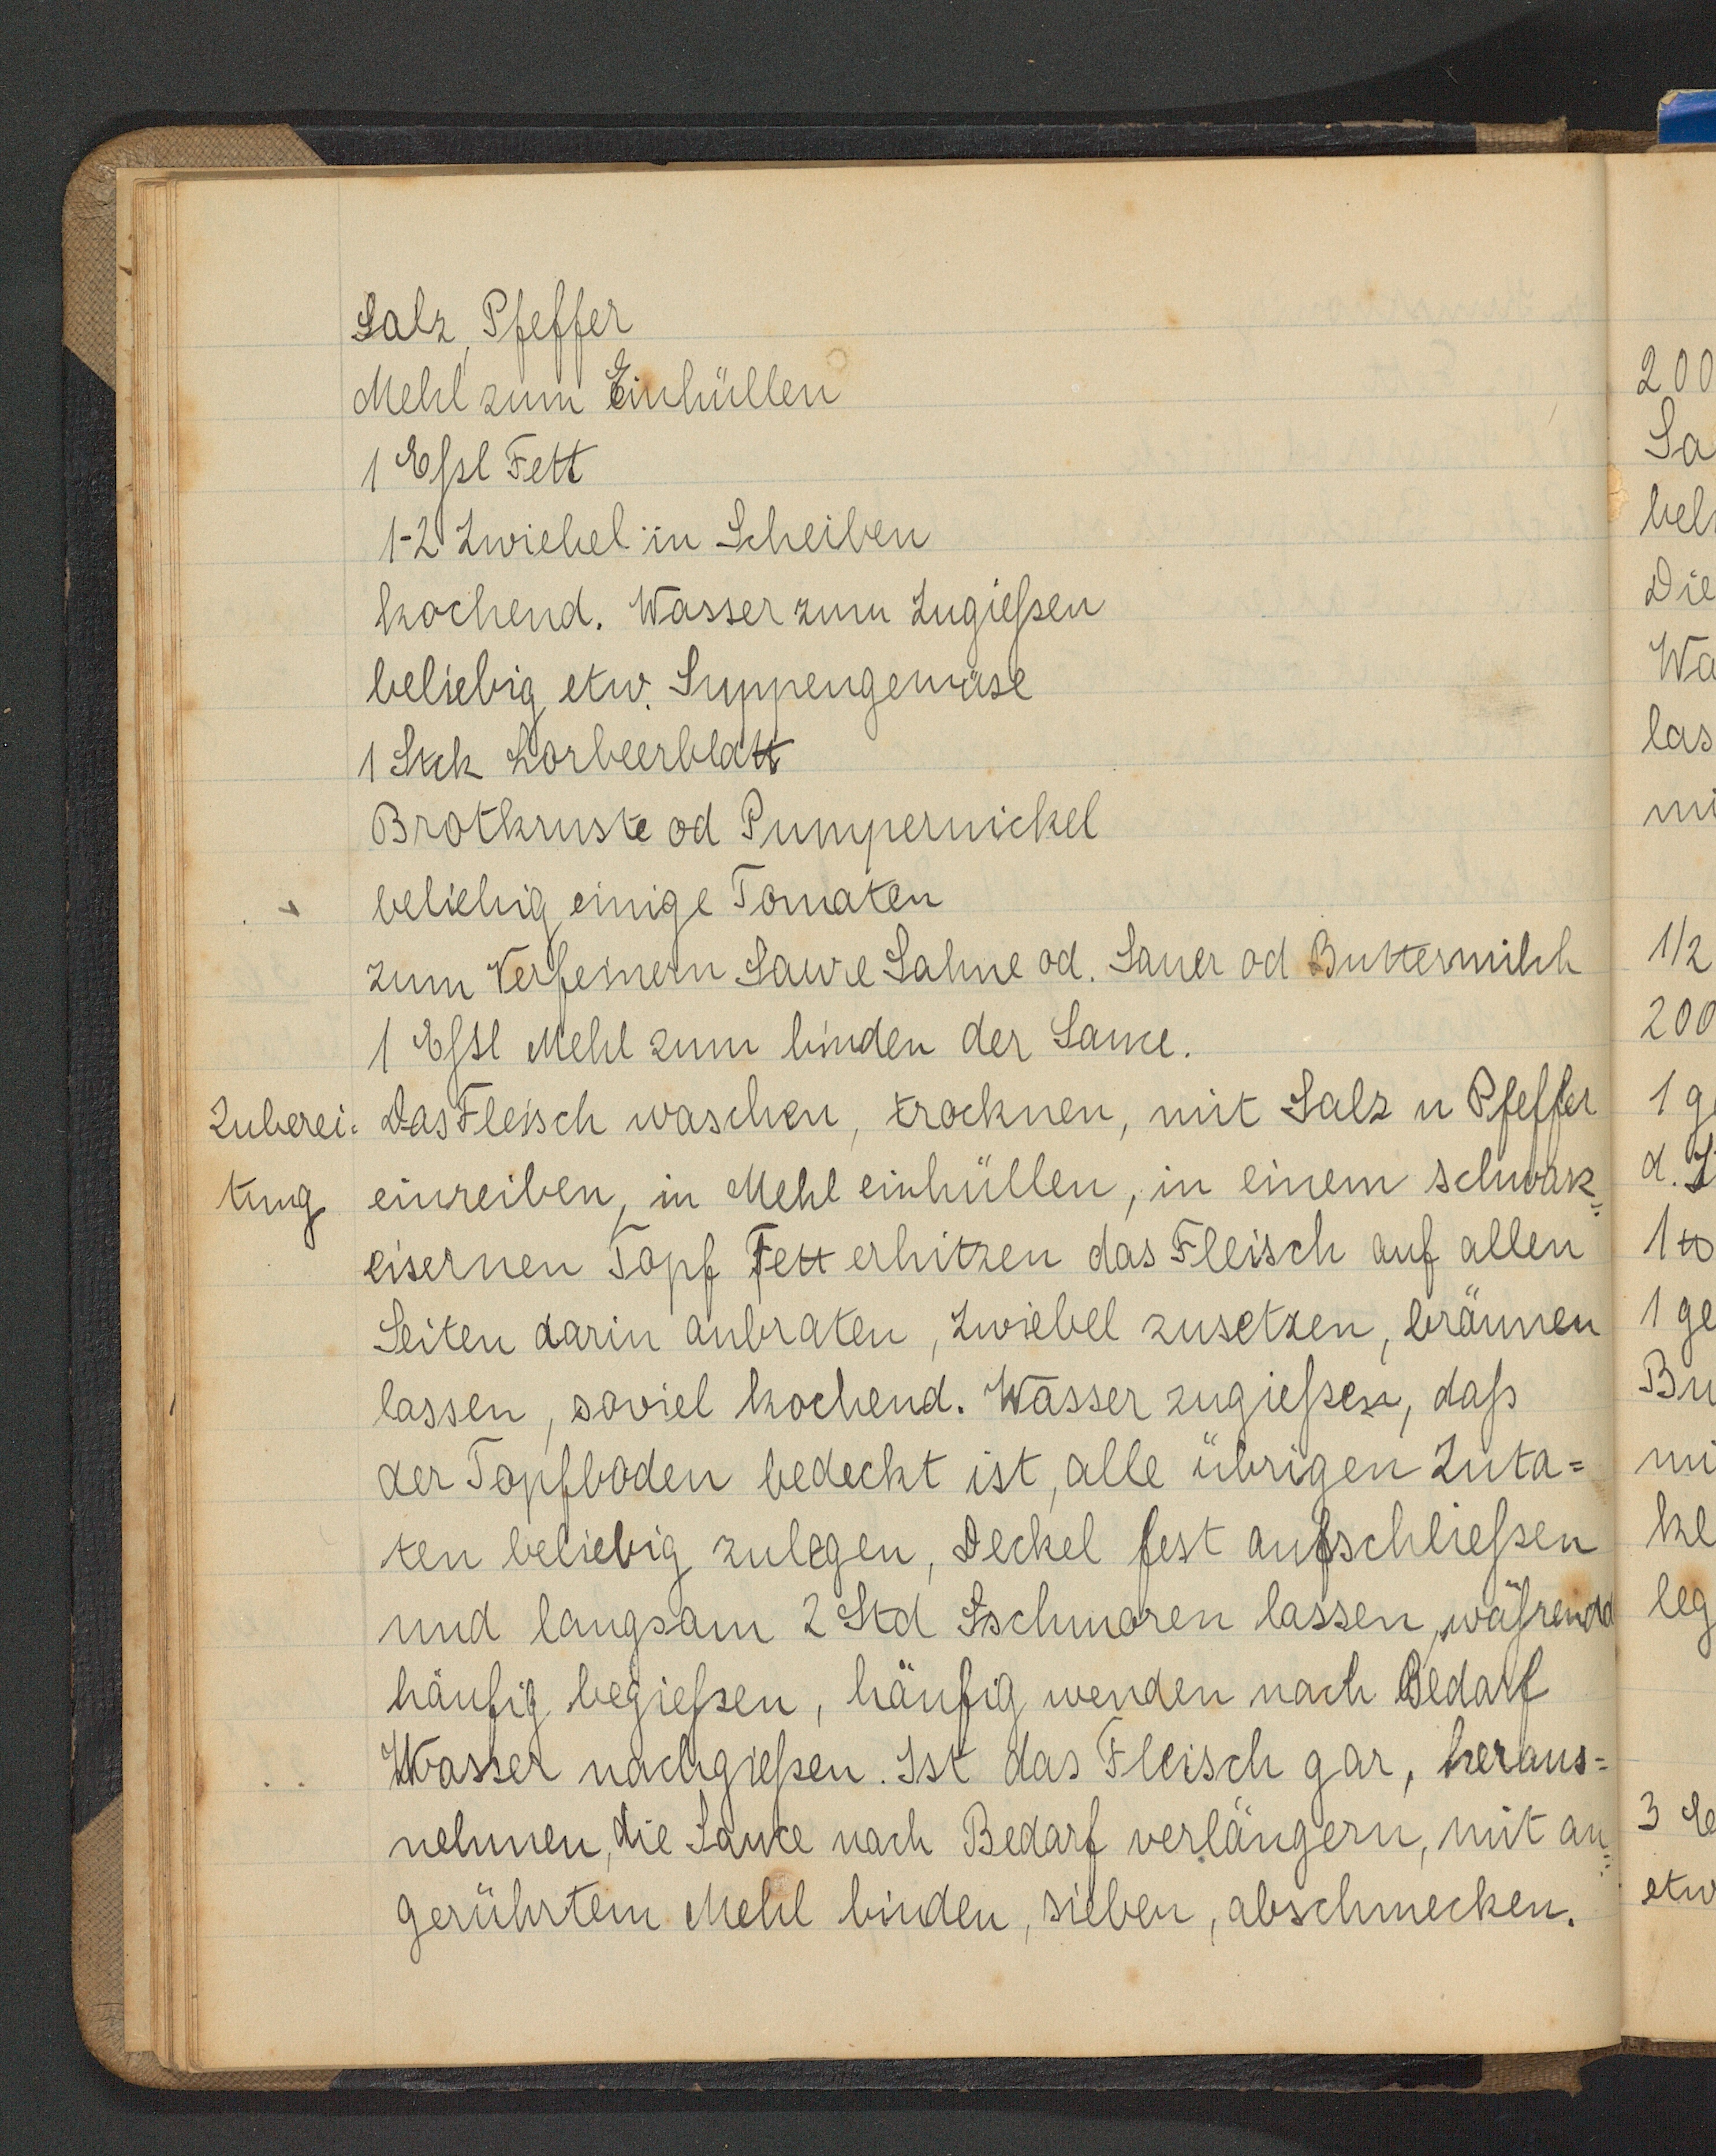 Salz, Pfeffer
Mehl zum Einhüllen
1 Eßl Fett
1-2 Zwiebel in Scheiben
kochend. Wasser zum Zugießen
beliebig etw. Suppengemüse
1 Stck Lorbeerblatt
Brotkruste od Pumpernickel
beliebig einige Tomaten
zum Verfeinern Saure Sahne od. Sauer od Buttermilch
1 Eßl Mehl zum binden der Sauce.
Zuberei= Das Fleisch waschen, trocknen, mit Salz u Pfeffer
tung einreiben, in Mehl einhüllen, in einem schwarz=
eisernen Topf Fett erhitzen das Fleisch auf allen
Seiten darin anbraten, Zwiebel zusetzen, bräunen
lassen, soviel kochend. Wasser zugießen, daß
der Topfboden bedeckt ist, alle übrigen Zuta=
ten beliebig zulegen, Deckel fest aufschließen
und langsam 2 Std schmoren lassen, während
häufig begießen, häufig wenden nach Bedarf
Wasser nachgießen. Ist das Fleisch gar, heraus=
nehmen, die Sauce nach Bedarf verlängern, mit an=
gerührtem Mehl binden, sieben, abschmecken.
200
Sa
bel
Die
Wa
las
mi
1/2
200
1 ge
d.
1
1 ge
Bu
mi
kl
leg
3
etw